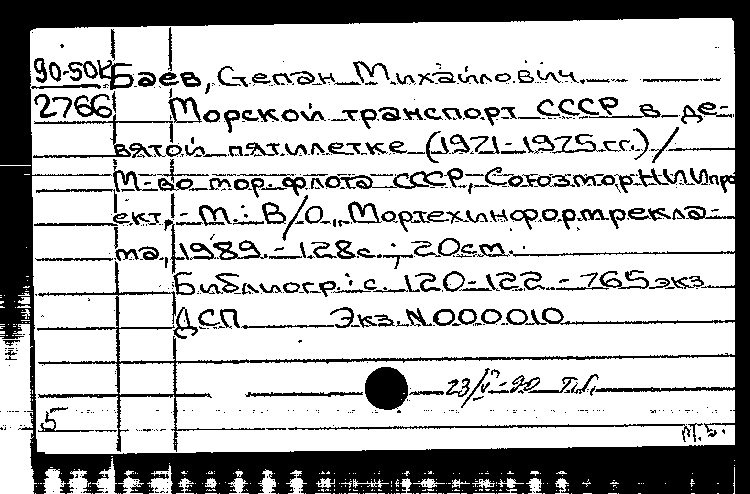 90-50к Баев, Степан Михайлович.
2766 Морской транспорт СССР в де-
вятой пятилетке (1971-1975 гг.) /
М-во мор. флота СССР, Союзморниипро
ект. - М.: В/О „Мортехинформрекла-
ма, 1989. - 128с.; 20см.
Библиогр.: с. 120-122 - 765 экз
ДСП Экз. N 000010
23/V-90 Т.Г.
5
М.Б.